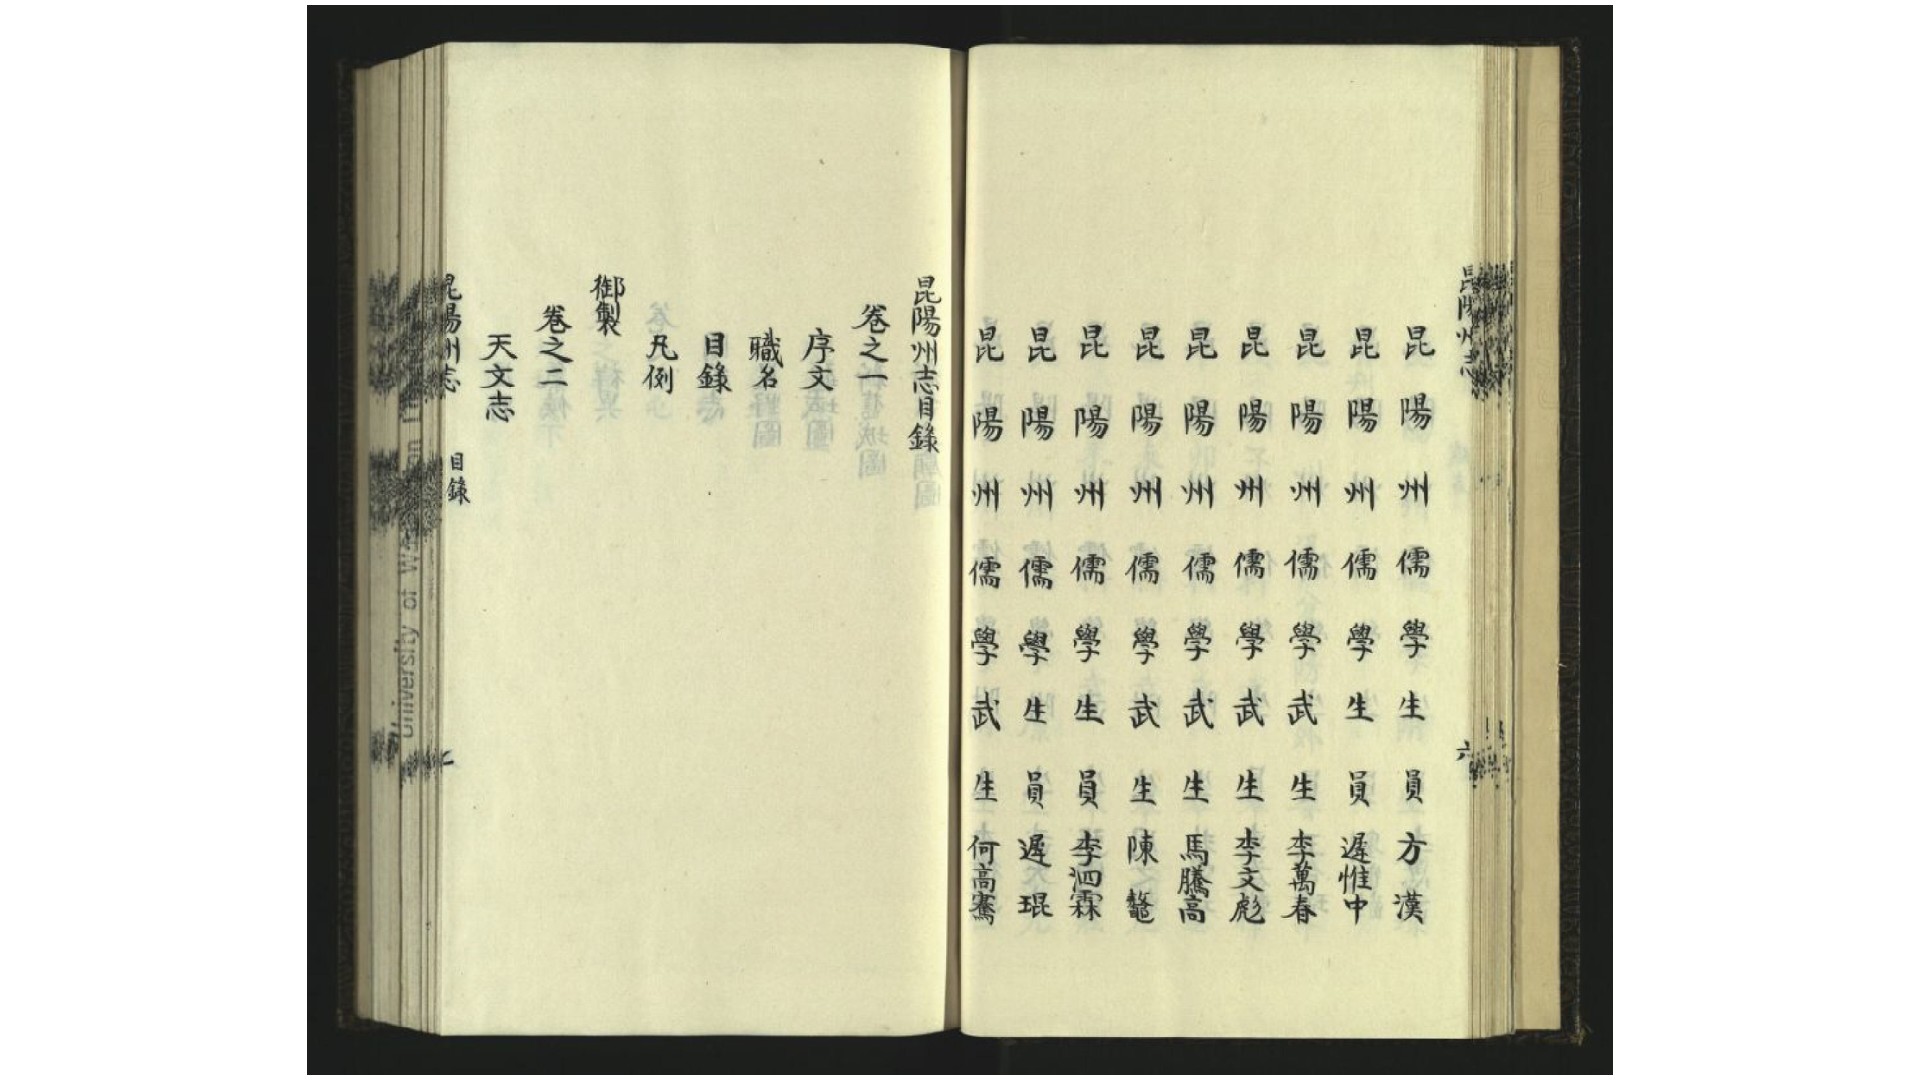 昆陽州志
六
昆陽州儒學生員方漢
昆陽州儒學生員遲惟中
昆陽州儒學武生李萬春
昆陽州儒學武生李文彪
昆陽州儒學武生馬騰高
昆陽州儒學武生陳鼇
昆陽州儒學生員李泗霖
昆陽州儒學生員遲大琨
昆陽州儒學武生何高騫
昆陽州志目錄
卷之一
序文
職名
目錄
凡例
御製
卷之二
天文志
昆陽州志
目錄
University of